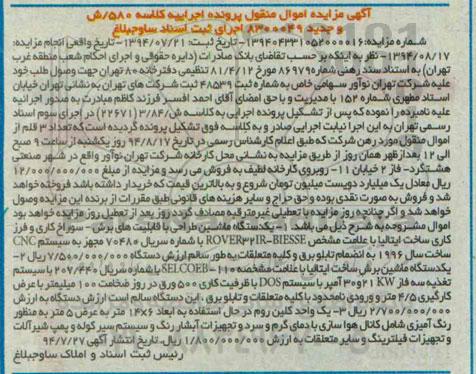 آگهی مزایده اموال منقول پرونده اجراییه کلاسه ۵۸۰/ش
و جدید ۸۳۰۰۰۴۹ اجرای ثبت اسناد وجدیدساوجبلاغ
شماره مزایده: ۱۳۹۴۰۴۳۳۱۰۵۲۰۰۰۰۱۶- تاریخ ثبت: ۱۳۹۴/۰۷/۲۱- تاریخ واقعی انجام مزایده:
۱۳۹۴/۰۸/۱۷- نظر به اینکه بر حسب تقاضای بانک صادرات (دایره حقوقی و اجرای احکام شعب منطقه غرب
تهران) به استناد سند رهنی شماره ۸۶۹۷۹ مورخ ۸۱/۴/۱۲ تنظیمی دفترخانه ۸۰ تهران جهت وصول طلب خود
علیه شرکت تهران نوآور سهامی خاص به شماره ثبت ۴۸۵۳۹ ثبت شرکت های تهران به نشانی تهران خیابان
استاد مطهری شماره ۱۵۲ با مدیریت و با حق امضای آقای احمد افسر فرزند کاظم مبادرت به صدور اجرائیه
علیه نامبرده را نموده که پس از تشکیل پرونده اجرایی به کلاسه ش/۳/۸۴ (۲۲۶۷۱) در اجرای سوم اسناد
رسمی تهران به این اجرا نیابت اجرایی صادر و به کلاسه فوق تشکیل پرونده گردیده است که تعداد ۳ قلم از
اموال منقول مورد رهن شرکت که طبق اعلام کارشناس رسمی در تاریخ ۹۴/۸/۱۷ روز یکشنبه از ساعت ۹ صبح
الی ۱۲ بعدازظهر همان روز از طریق مزایده به نشانی محل کارخانه شرکت تهران نوآور واقع در شهر صنعتی
هشتگرد- فاز ۲ خیابان ۱۱- روبروی کارخانه لطیف به فروش می رسد و مزایده از مبلغ ۱۲/۰۰۰/۰۰۰/۰۰۰
ریال معادل یک میلیارد دویست میلیون تومان شروع و به بالاترین قیمت که خریدار داشته باشد فروخته خواهد
شد و فروش به صورت نقدی بوده و حق حراج و سایر هزینه های قانونی طبق مقررات از برنده این مزایده وصول
خواهد شد و اگر چنانچه روز مزایده با تعطیلی غیرمترقبه مصادف گردد روز بعد از تعطیل روز مزایده خواهد بود
اموال مشروحه به شرح ذیل می باشد. ۱- یکدستگاه ماشین طراحی با قابلیت های برش- سوراخ کاری و فرز
کاری ساخت ایتالیا با علامت مشخص ROVER۳۲۲R-BIESSE با شماره سریال ۷۰۴۸۰ مجهز به سیستم CNC
ساخت سال ۱۹۹۶ به انضمام تابلو برق و کلیه متعلقات به طور سالم ارزش دستگاه ۷/۵۰۰/۰۰۰/۰۰۰ ریال ۲-
یکدستگاه ماشین برش ساخت ایتالیا با علامت مشخصه ۱۱۰-SELCOEB با شماره سریال ۲۰۷/۴۴۰ با سیستم
تغذیه سه فاز KW ۲۱ و ۳۰ آمپر با سیستم DOS با ظرفیت کاری ۵۰۰ ورق در روز ضخامت ۱۰۰ میلیمتر با عرض
کارگیری ۴/۵ متر و ورودی نامحدود با کلیه متعلقات و تابلو برق. این دستگاه سالم است ارزش دستگاه به ارزش
۲/۷۰۰/۰۰۰/۰۰۰ ریال ۳- یک واحد کلین روم در حال استفاده به ابعاد ۱۴×۶ متر به عرض ۵ متر به منظور
رنگ آمیزی شامل کانال هوا سازی با دمای گرم و سرد و تجهیزات آبشار رنگ و سیستم سیر کوله و پمپ شیرآلات
و تجهیزات فیلترینگ و سایر متعلقات به ارزش ۱/۸۰۰/۰۰۰/۰۰۰ ریال. تاریخ انتشار آگهی ۹۴/۷/۲۷
رئیس ثبت اسناد و املاک ساوجبلاغ